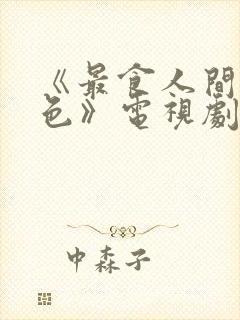 《最食人間
色》電視劇
中森子